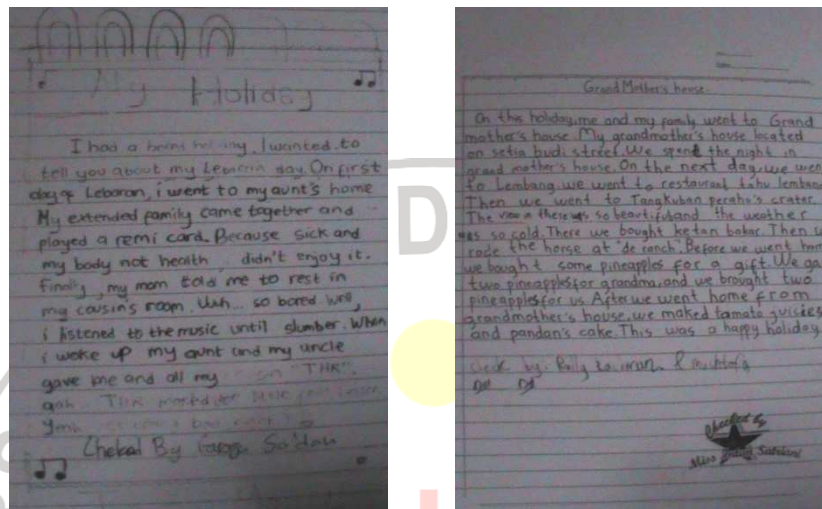 My Holiday
I had a boring holiday. I wanted to
tell you about my Lebaran day. On first
day of Lebaran, i went to my aunt's home
My extended family came together and
played a remi card. Because sick and
my body not health didn't enjoy it.
finally, my mom told me to rest in
my cousin's room. Uuh... so bored well,
i listened to the music until slumber. When
i woke up my aunt and my uncle
gave me and all my "THR".
THR
Cheked By Sa'dah
Grand Mother's house
On this holiday, me and my family went to Grand
mother's house. My grandmother's house located
on setia budi street. We spend the night in
grand mother's house. On the next day, we wen
to Lembang. we went to restaurant tahu lemban
Then we went to Tangkuban perahu's crater.
The view in there was so beautiful and the weather
was so cold. There we bought ketan bakar. Then w
rode the horse at "de ranch". Before we went hom
we bought some pineapples for a gift. We ga
two pineapples for grandma, and we brought two
pineapples for us. After we went home from
grandmother's house, we maked tomato juices
and pandan's cake. This was a happy holiday.
by:
Checked by
Miss Sabdani
D